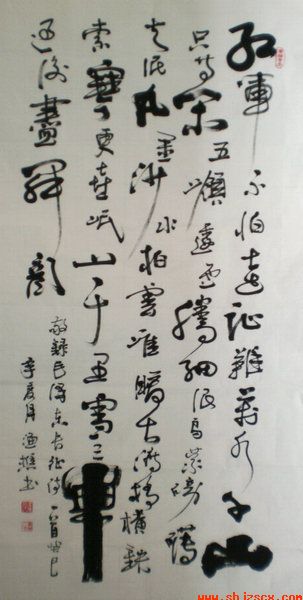 紅軍不怕遠征難萬水千山
只等閑五嶺逶迤騰細浪烏蒙磅礴
走泥丸金沙水拍雲崖暖大渡橋橫鐵
索寒更喜岷山千里雪三軍
過後盡開顏
敬錄毛澤東長征詩一首
漁樵書
www.shizscx.com